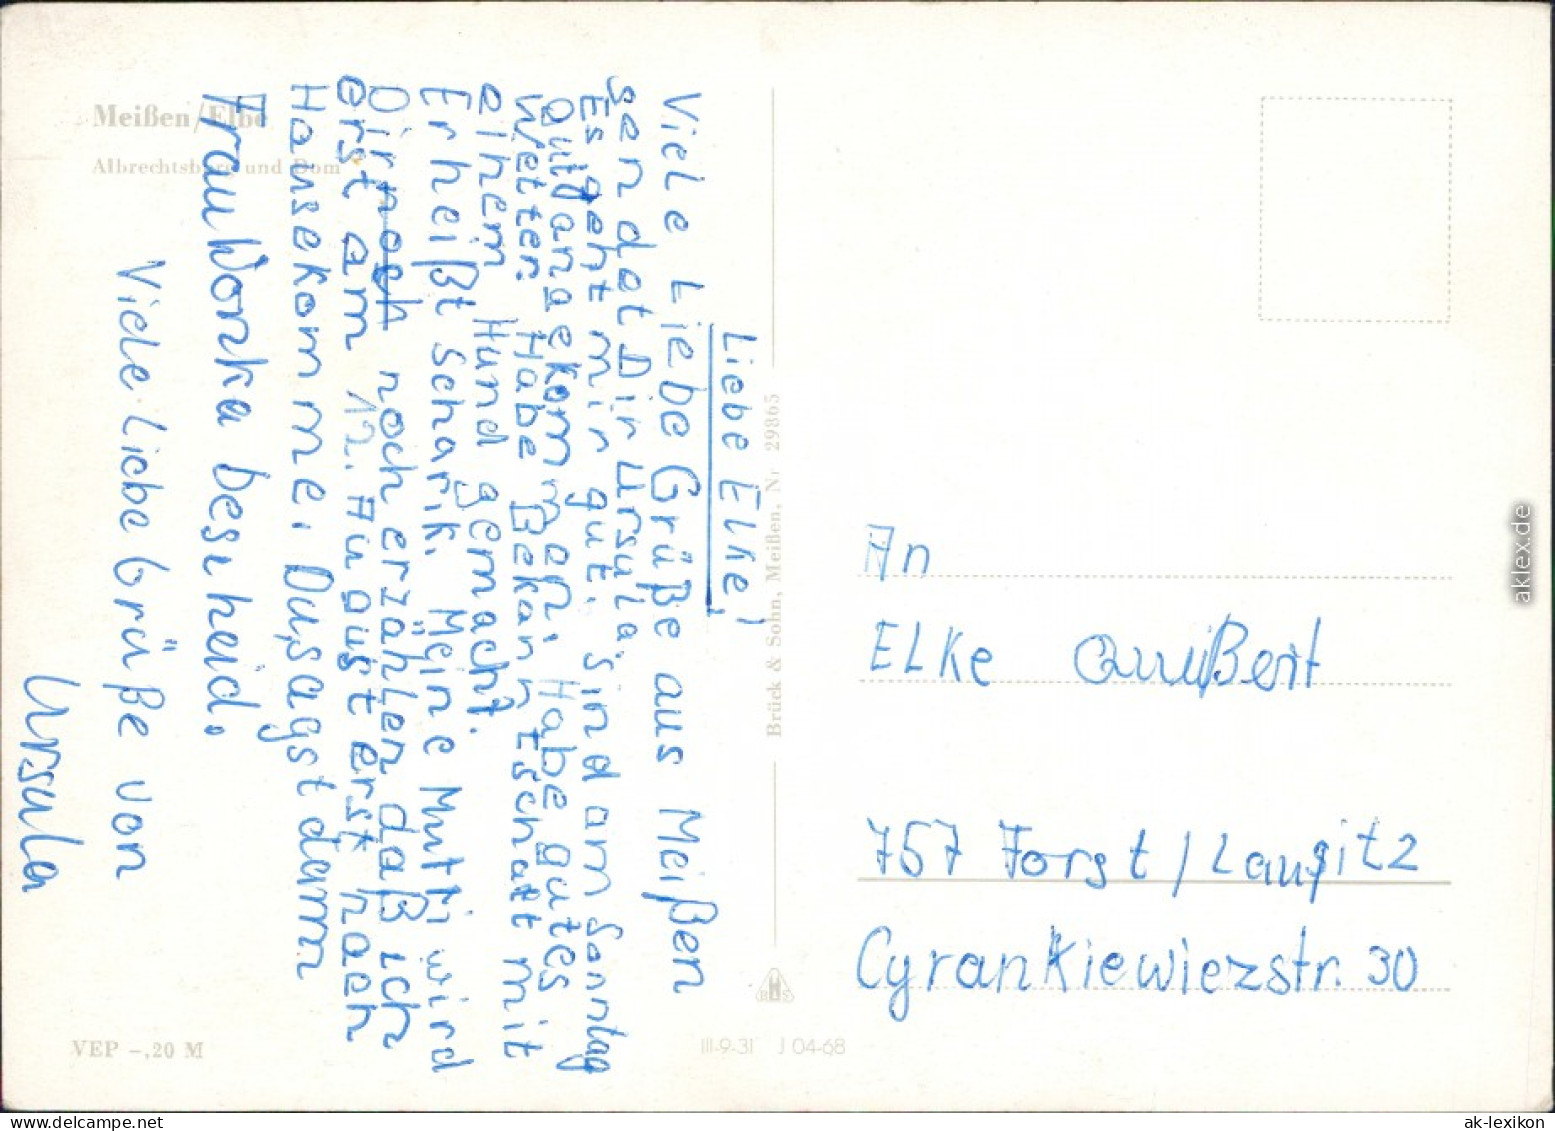 Meißen/Elbe
Albrechtsburg und Dom
Liebe Elke!
Viele Liebe Grüße aus Meißen
sendet Dir Ursula.
Es geht mir gut. Sind am Sonntag
gut angekommen. Habe gutes
Wetter. Habe Bekanntschatt mit
einem Hund gemacht.
Er heißt Scharik. Meine Mutti wird
Dir noch noch erzählen daß ich
erst am 12. August erst nach
Hausekomme. Du, sagst dann
Frau Wonka bescheid.
Viele Liebe Grüße von
Ursula
VEP -,20 M
Brück & Sohn, Meißen, Nr 29865
B H S
III-9-31 J 04-68
An
Elke
757 Forst / Lausitz
Cyrankiewiezstr. 30
aklex.de
ak-lexikon